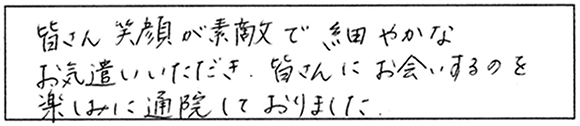 皆さん笑顔が素敵で細やかな
お気遣いいただき、皆さんにお会いするのを
楽しみに通院しておりました。